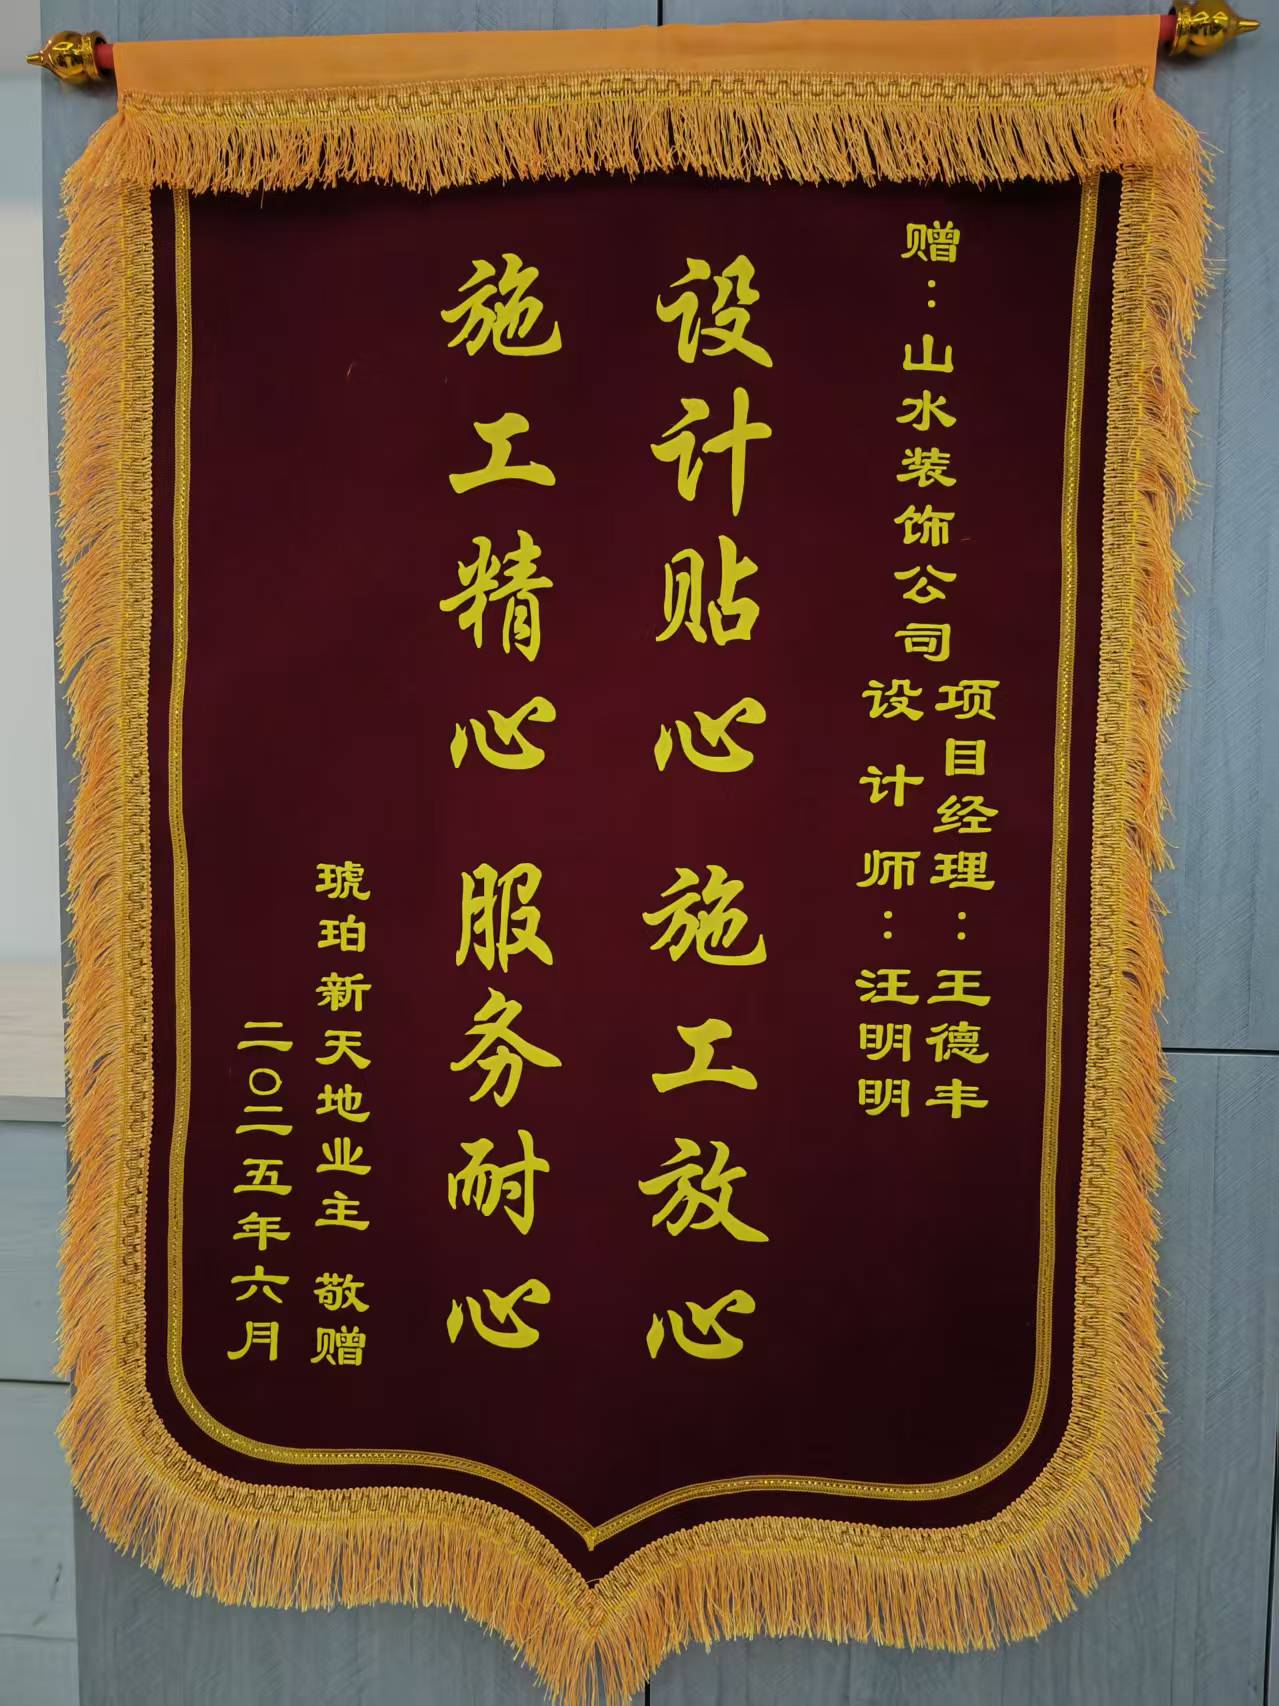 赠：山水装饰公司
项目经理：王德丰
设计师：汪明明
设计贴心 施工放心
施工精心 服务耐心
琥珀新天地业主 敬赠
二〇二五年六月